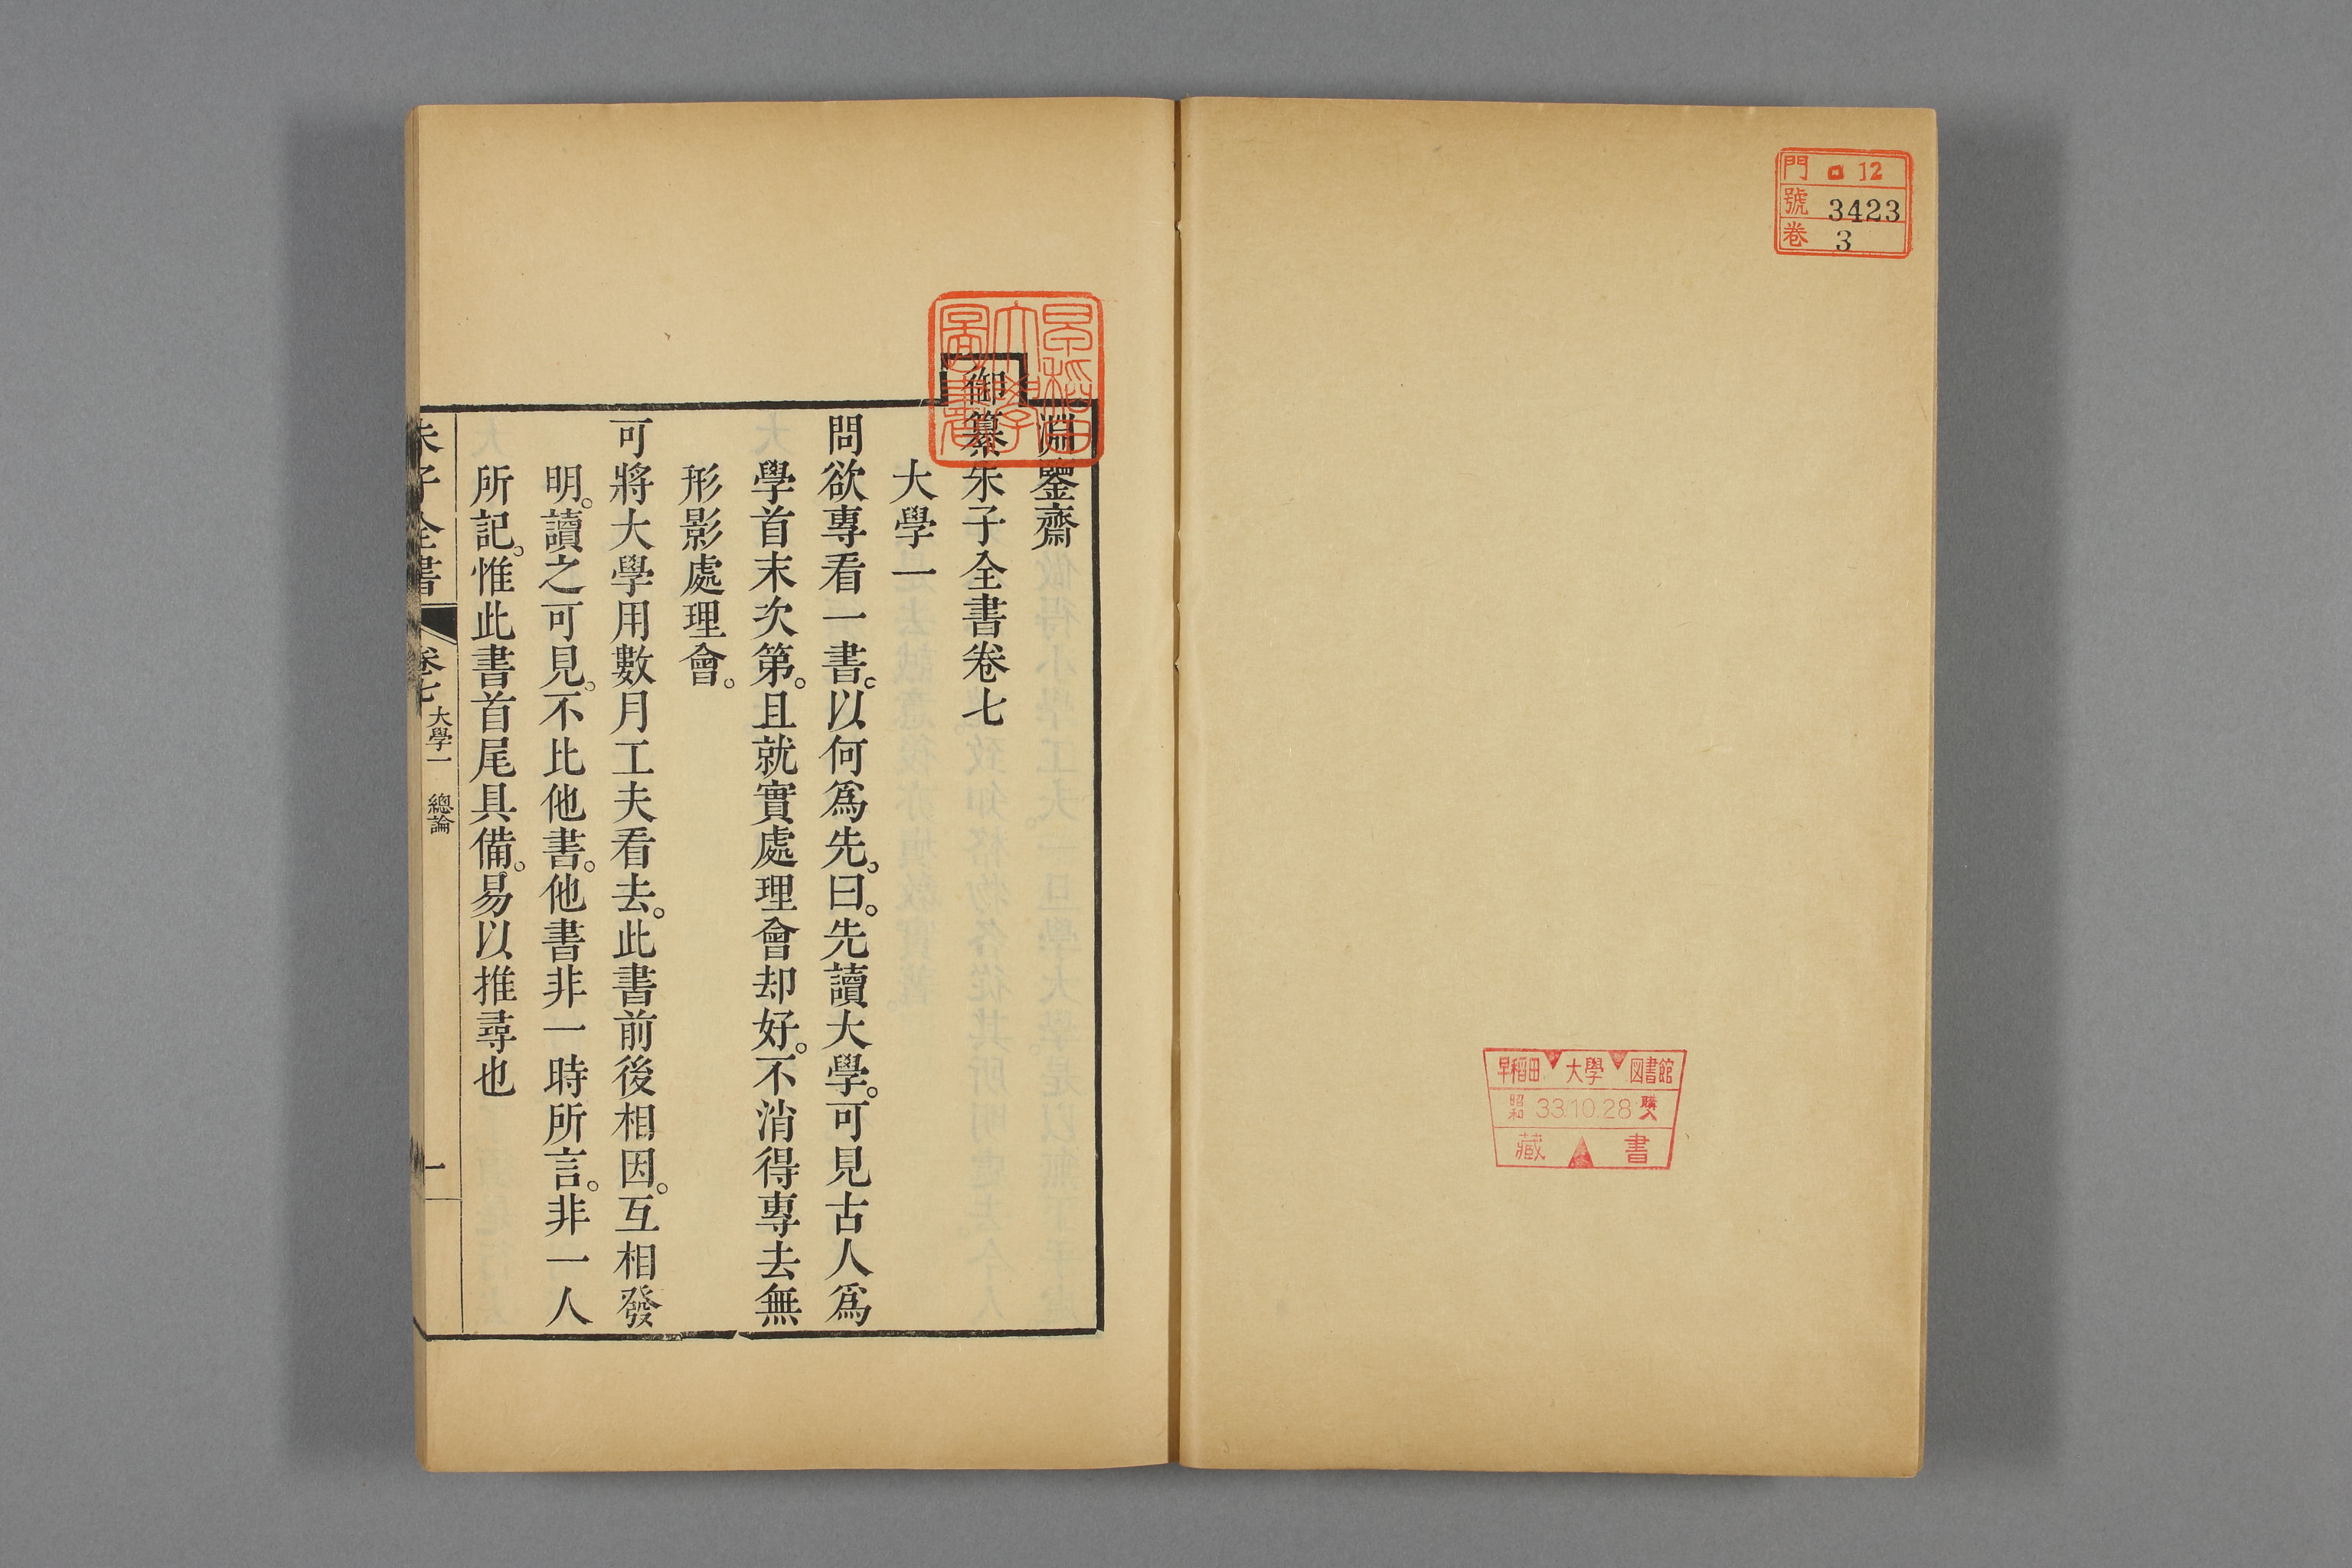 門 ロ 12
號 3423
卷 3
早稻田 大學 図書館
昭和 33.10.28 購入
藏書
早稻田
大學
圖書
淵鑒齋
御纂朱子全書卷七
大學一
問欲專看一書。以何爲先。曰。先讀大學。可見古人爲
學首末次第。且就實處理會却好。不消得專去無
形影處理會。
可將大學用數月工夫看去。此書前後相因。互相發
明。讀之可見。不比他書。他書非一時所言。非一人
所記。惟此書首尾具備。易以推尋也
朱子全書 卷七 大學一 總論 一